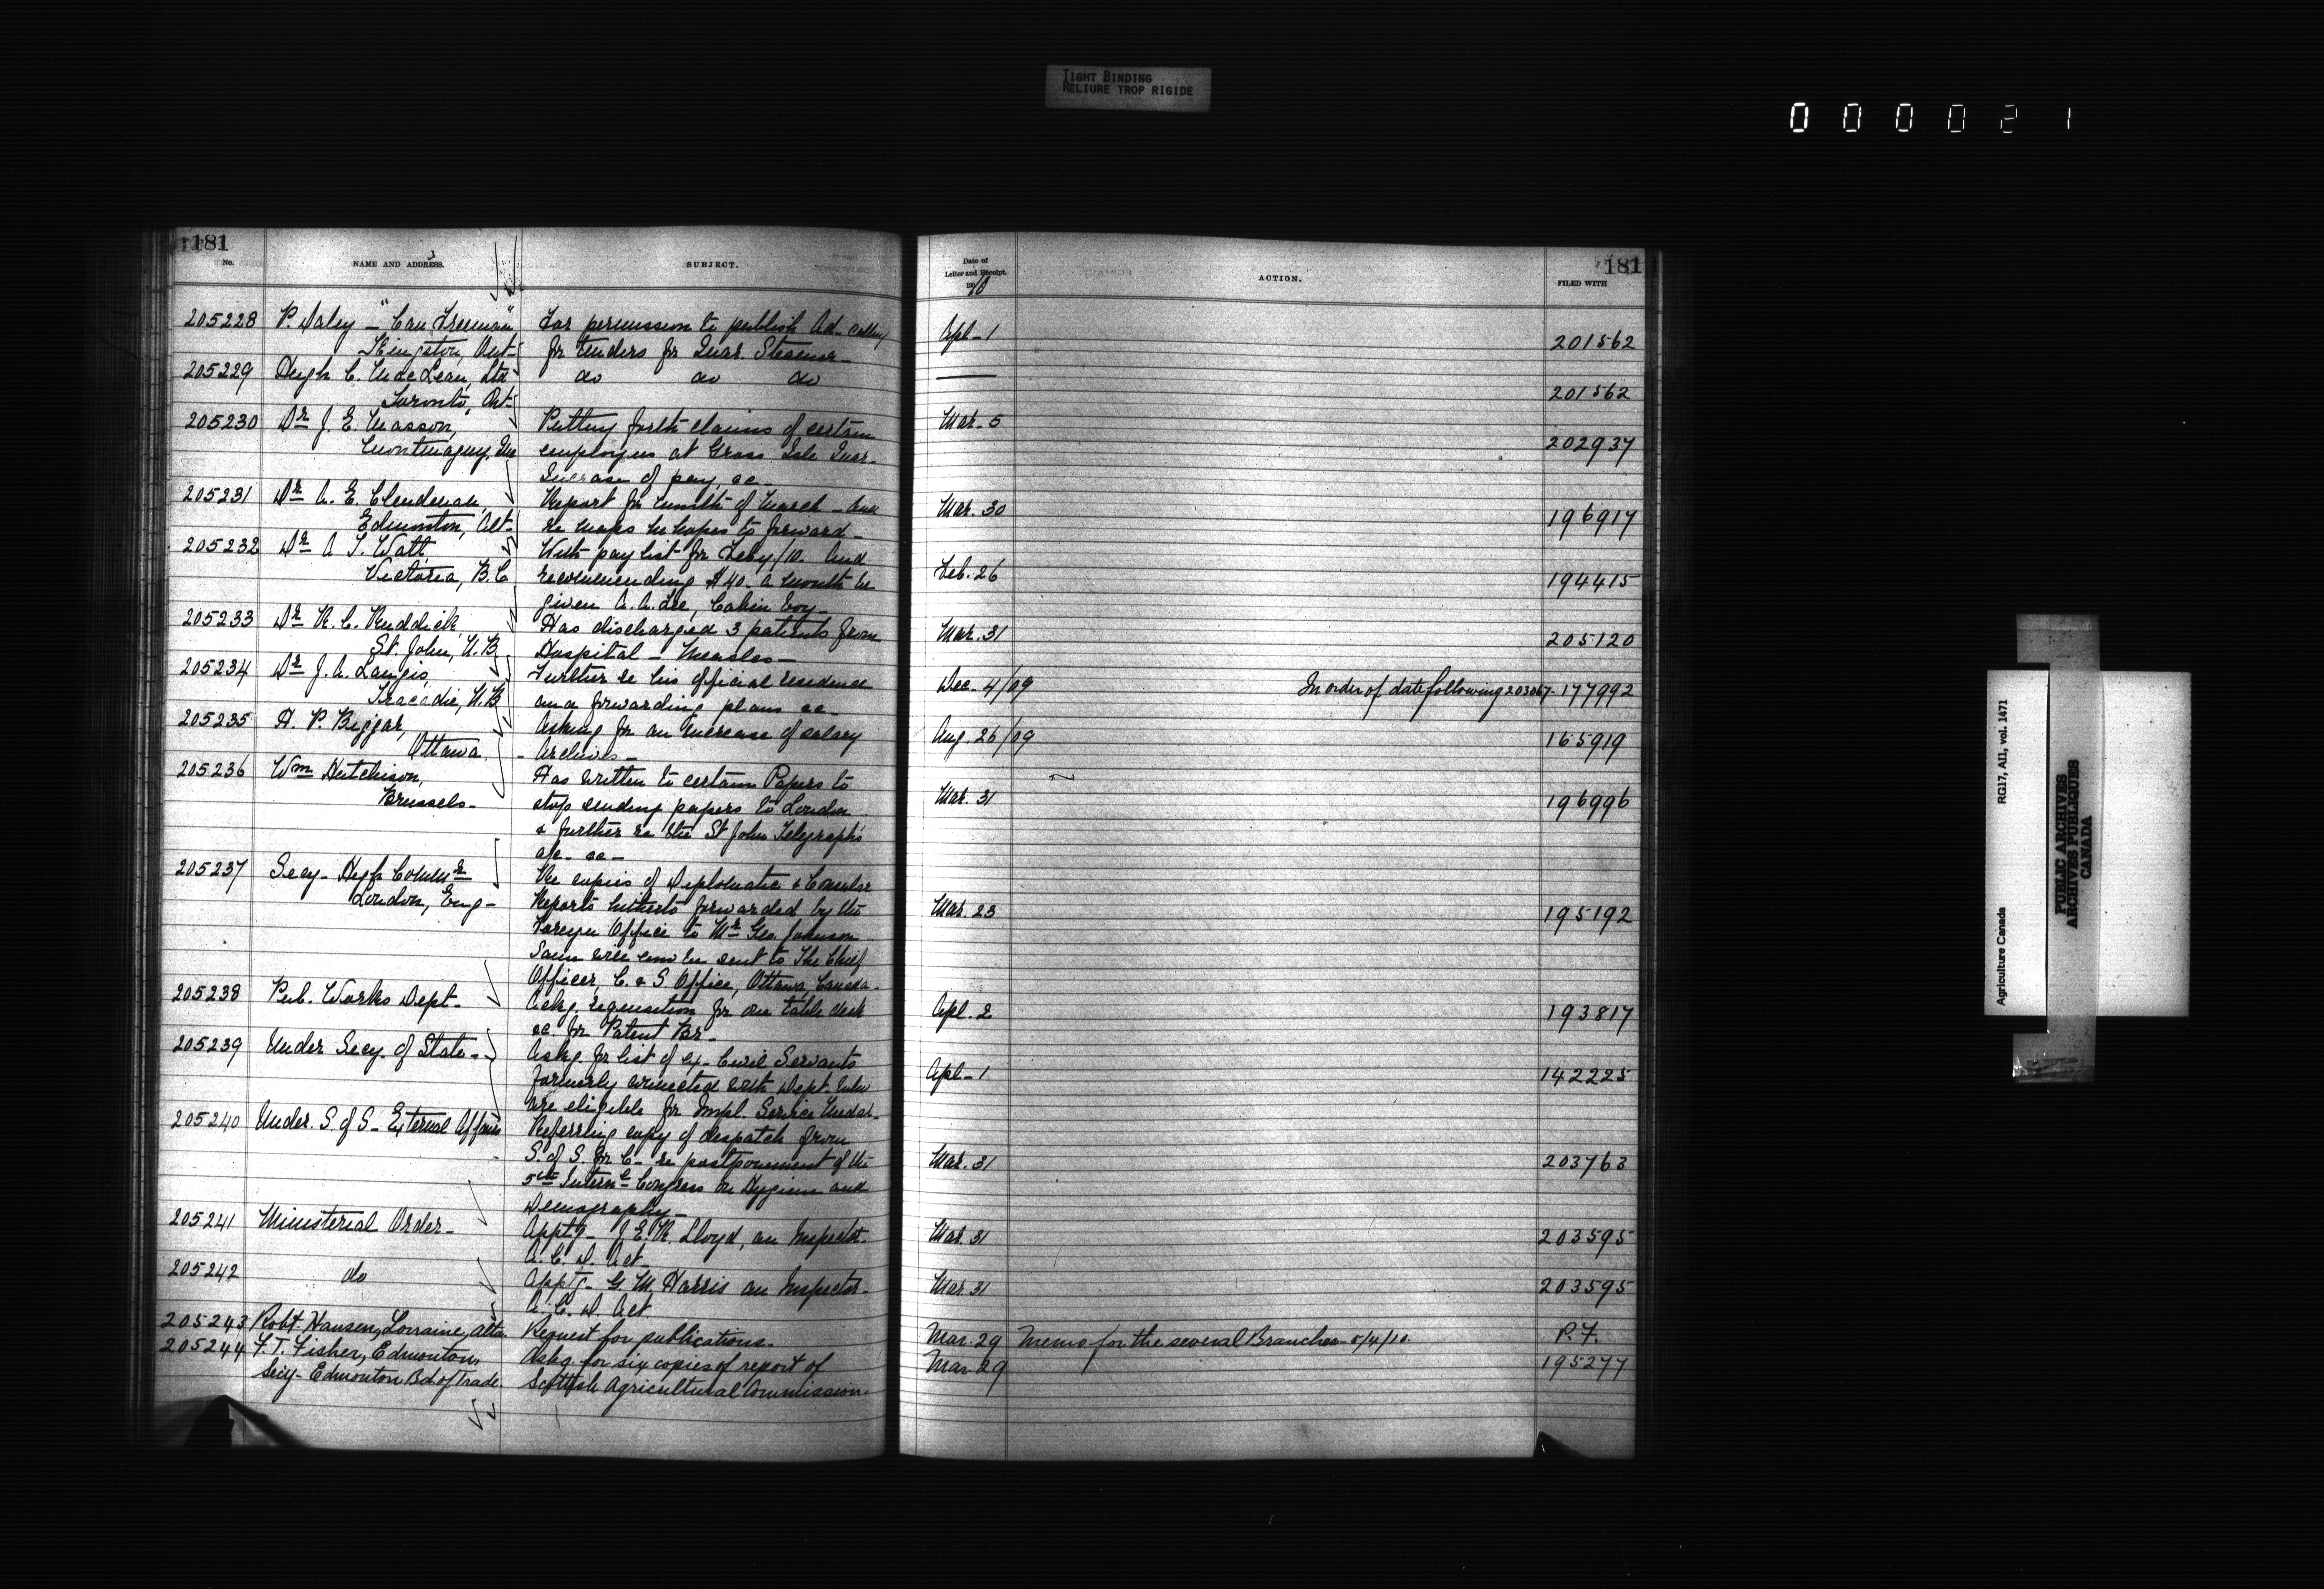 TIGHT BINDING
RELIURE TROP RIGIDE
000021
181
No. NAME AND ADDRESS. SUBJECT.
205228 P. Daley - "Can. Freeman" For permission to publish Ad. calling
Kingston, Ont- for tenders for Quar. Steamer-
205229 Hugh C. MacLean, Ltd do do do
Toronto, Ont-
205230 Dr J. E. Masson, Putting forth claims of certain
Montmagny, Que employees at Gross Isle Quar.
Increase of pay, &c-
205231 Dr A. E. Clendenan, Report for month of March - And
Edmonton, Alt- re maps he hopes to forward-
205232 Dr A. T. Watt With pay list for Feby/10. And
Victoria, B.C recommending $40. a month be
given A. A. Lee, Cabin boy-
205233 Dr R. C. Ruddick, Has discharged 3 patients from
St. John, N.B Hospital - Measles-
205234 Dr J. A. Langis, Further re his official residence
Tracadie, N.B and forwarding plans &c-
205235 H. P. Biggar, Asking for an increase of salary
Ottawa. - Archives-
205236 Wm Hutchison, Has written to certain Papers to
Brussels- stop sending papers to London
& further re the St John Telegraph's
a/c- &c-
205237 Secy- High Commr Re copies of Diplomatic & Consular
London, Eng- Reports hitherto forwarded by the
Foreign Office to Mr Geo. Johnson
Same will now be sent to The Chief
Officer, C. & S. Office, Ottawa, Canada.
205238 Pub. Works Dept- Ackg. requisition for one table desk
&c. for Patent Br-
205239 Under Secy. of State- Askg. for list of ex-Civil Servants
formerly connected with Dept. who
are eligible for Impl. Service Medal-
205240 Under. S. of S- External Affairs Referring copy of despatch from
S. of S. for C- re postponement of the
5th Internl Congress on Hygiene and
Demography-
205241 Ministerial Order- Apptg- J. E. R. Lloyd, an Inspector-
A. C. D. Act-
205242 do Apptg- G. M. Harris an Inspector-
A. C. D. Act
205243 Robt. Hansen, Lorraine, Alta. Request for publications.
205244 F. T. Fisher, Edmonton, Askg. for six copies of report of
Secy- Edmonton Bd of Trade Scottish Agricultural Commission.
181
Date of
Letter and Receipt. ACTION. FILED WITH
1910
Apl- 1 201562
— 201562
Mar. 5 202937
Mar. 30 196917
Feb. 26 194415
Mar. 31 205120
Dec. 4/09 In order of date following 203067- 177992
Aug. 26/09 165919
Mar. 31 196996
Mar. 23 195192
Apl. 2 193817
Apl- 1 142225
Mar. 31 203763
Mar. 31 203595
Mar. 31 203595
Mar. 29 Memo for the several Branches- 5/4/10. P.F.
Mar. 29 195277
Agriculture Canada RG17, AII, vol. 1471
PUBLIC ARCHIVES
ARCHIVES PUBLIQUES
CANADA